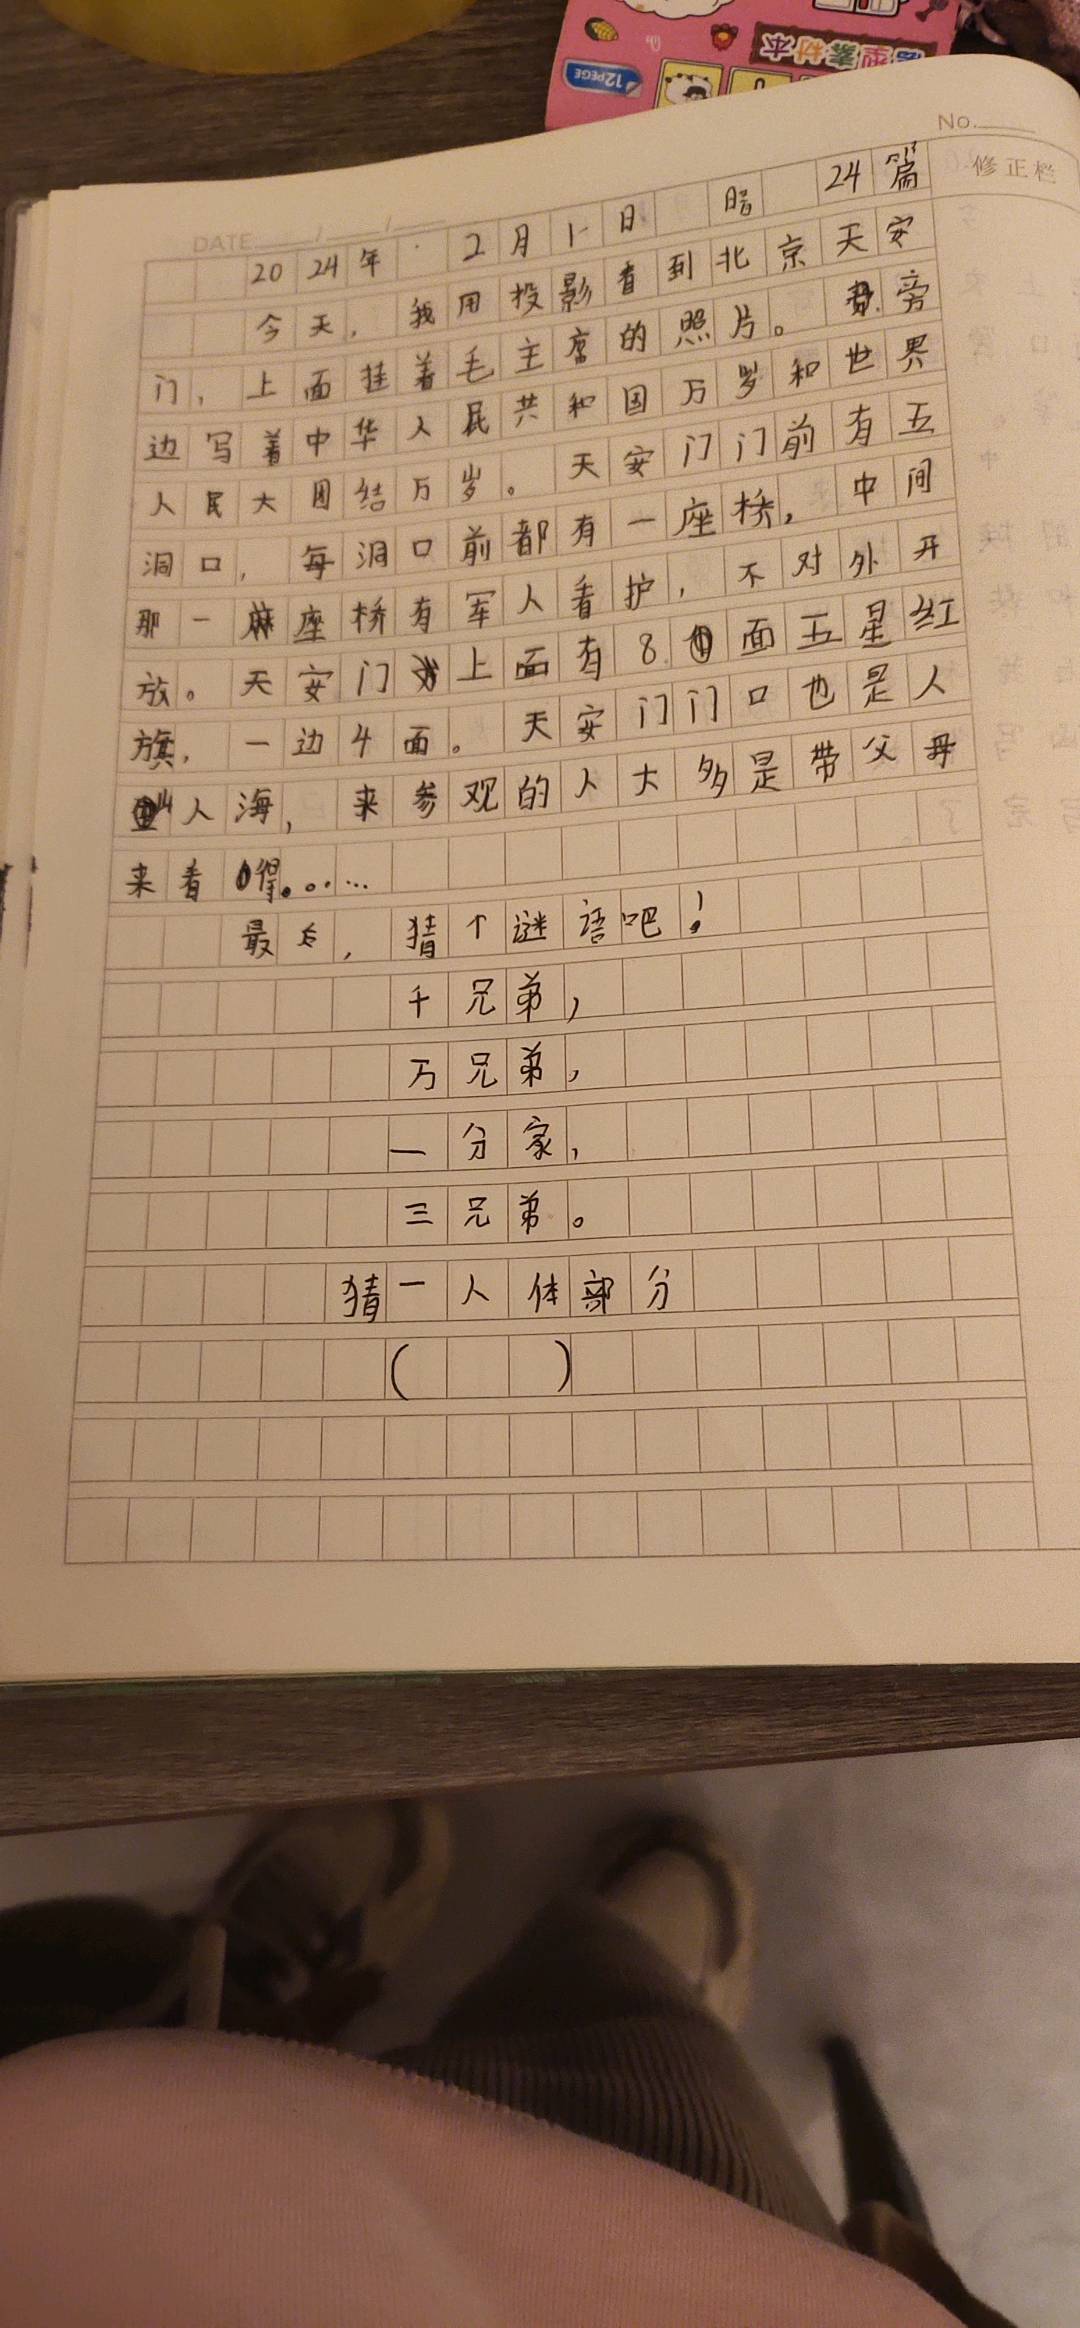 造型素材本
12PEGE
No.
修正栏
DATE / /
2024年 2月1日 暗 24篇
今天，我用投影看到北京天安
门，上面挂着毛主席的照片。旁
边写着中华人民共和国万岁和世界
人民大团结万岁。天安门门前有五
洞口，每洞口前都有一座桥，中间
那一座桥有军人看护，不对外开
放。天安门上面有8面五星红
旗，一边4面。天安门门口也是人
山人海，来参观的人大多是带父母
来看得。……
最后，猜个谜语吧！
千兄弟，
万兄弟，
一分家，
三兄弟。
猜一人体部分
（ ）